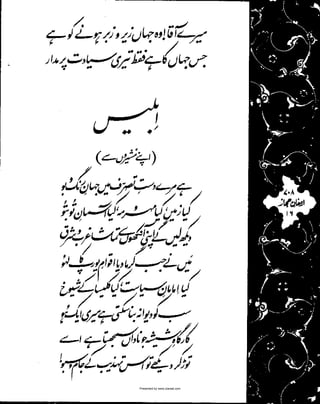 میرے آقا! وہ جہاں زیر و زبر ہونے کو ہے
جس جہاں کا ہے فقط تیری سیادت پر مدار
ابلیس
(اپنے مشیروں سے)
ہے مرے دستِ تصرف میں جہانِ رنگ و بو
کیا زمیں، کیا مہر و مہ، کیا آسمانِ تو بتو
دیکھ لیں گے اپنی آنکھوں سے تماشا غرب و شرق
میں نے جب گرما دیا اقوامِ یورپ کا لہو
کیا امامانِ سیاست، کیا کلیسا کے شیوخ
سب کو دیوانہ بنا سکتی ہے میری ایک ہو
کارگاہِ شیشہ جو ناداں سمجھتا ہے اسے
توڑ کر دیکھے تو اس تہذیب کے جام و سبو!
۷۰۸
ارمغان حجاز
۱۶
Presented by www.iqbalist.com